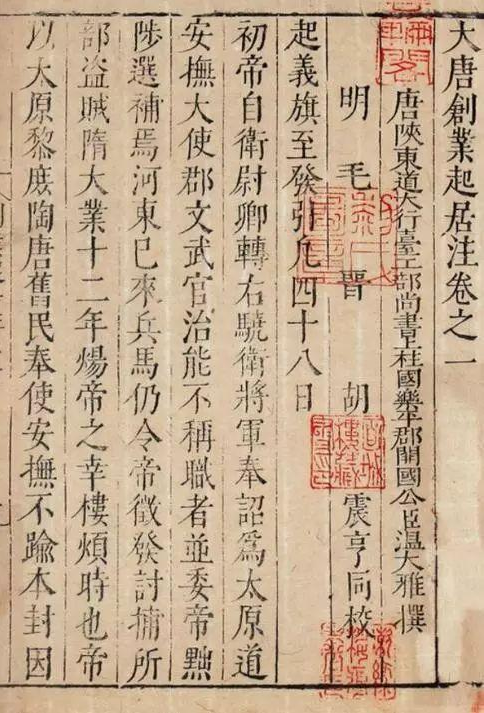 大唐創業起居注卷之一
唐陝東道大行臺工部尚書上柱國樂平郡開國公臣温大雅撰
明 毛晉 胡震亨同校
起義旗至發引凡四十八日
初帝自衛尉卿轉右驍衛將軍奉詔爲太原道
安撫大使郡文武官治能不稱職者並委帝黜
陟選補焉河東已來兵馬仍令帝徵發討捕所
部盗賊隋大業十二年煬帝之幸樓煩時也帝
以太原黎庶陶唐舊民奉使安撫不踰本封因